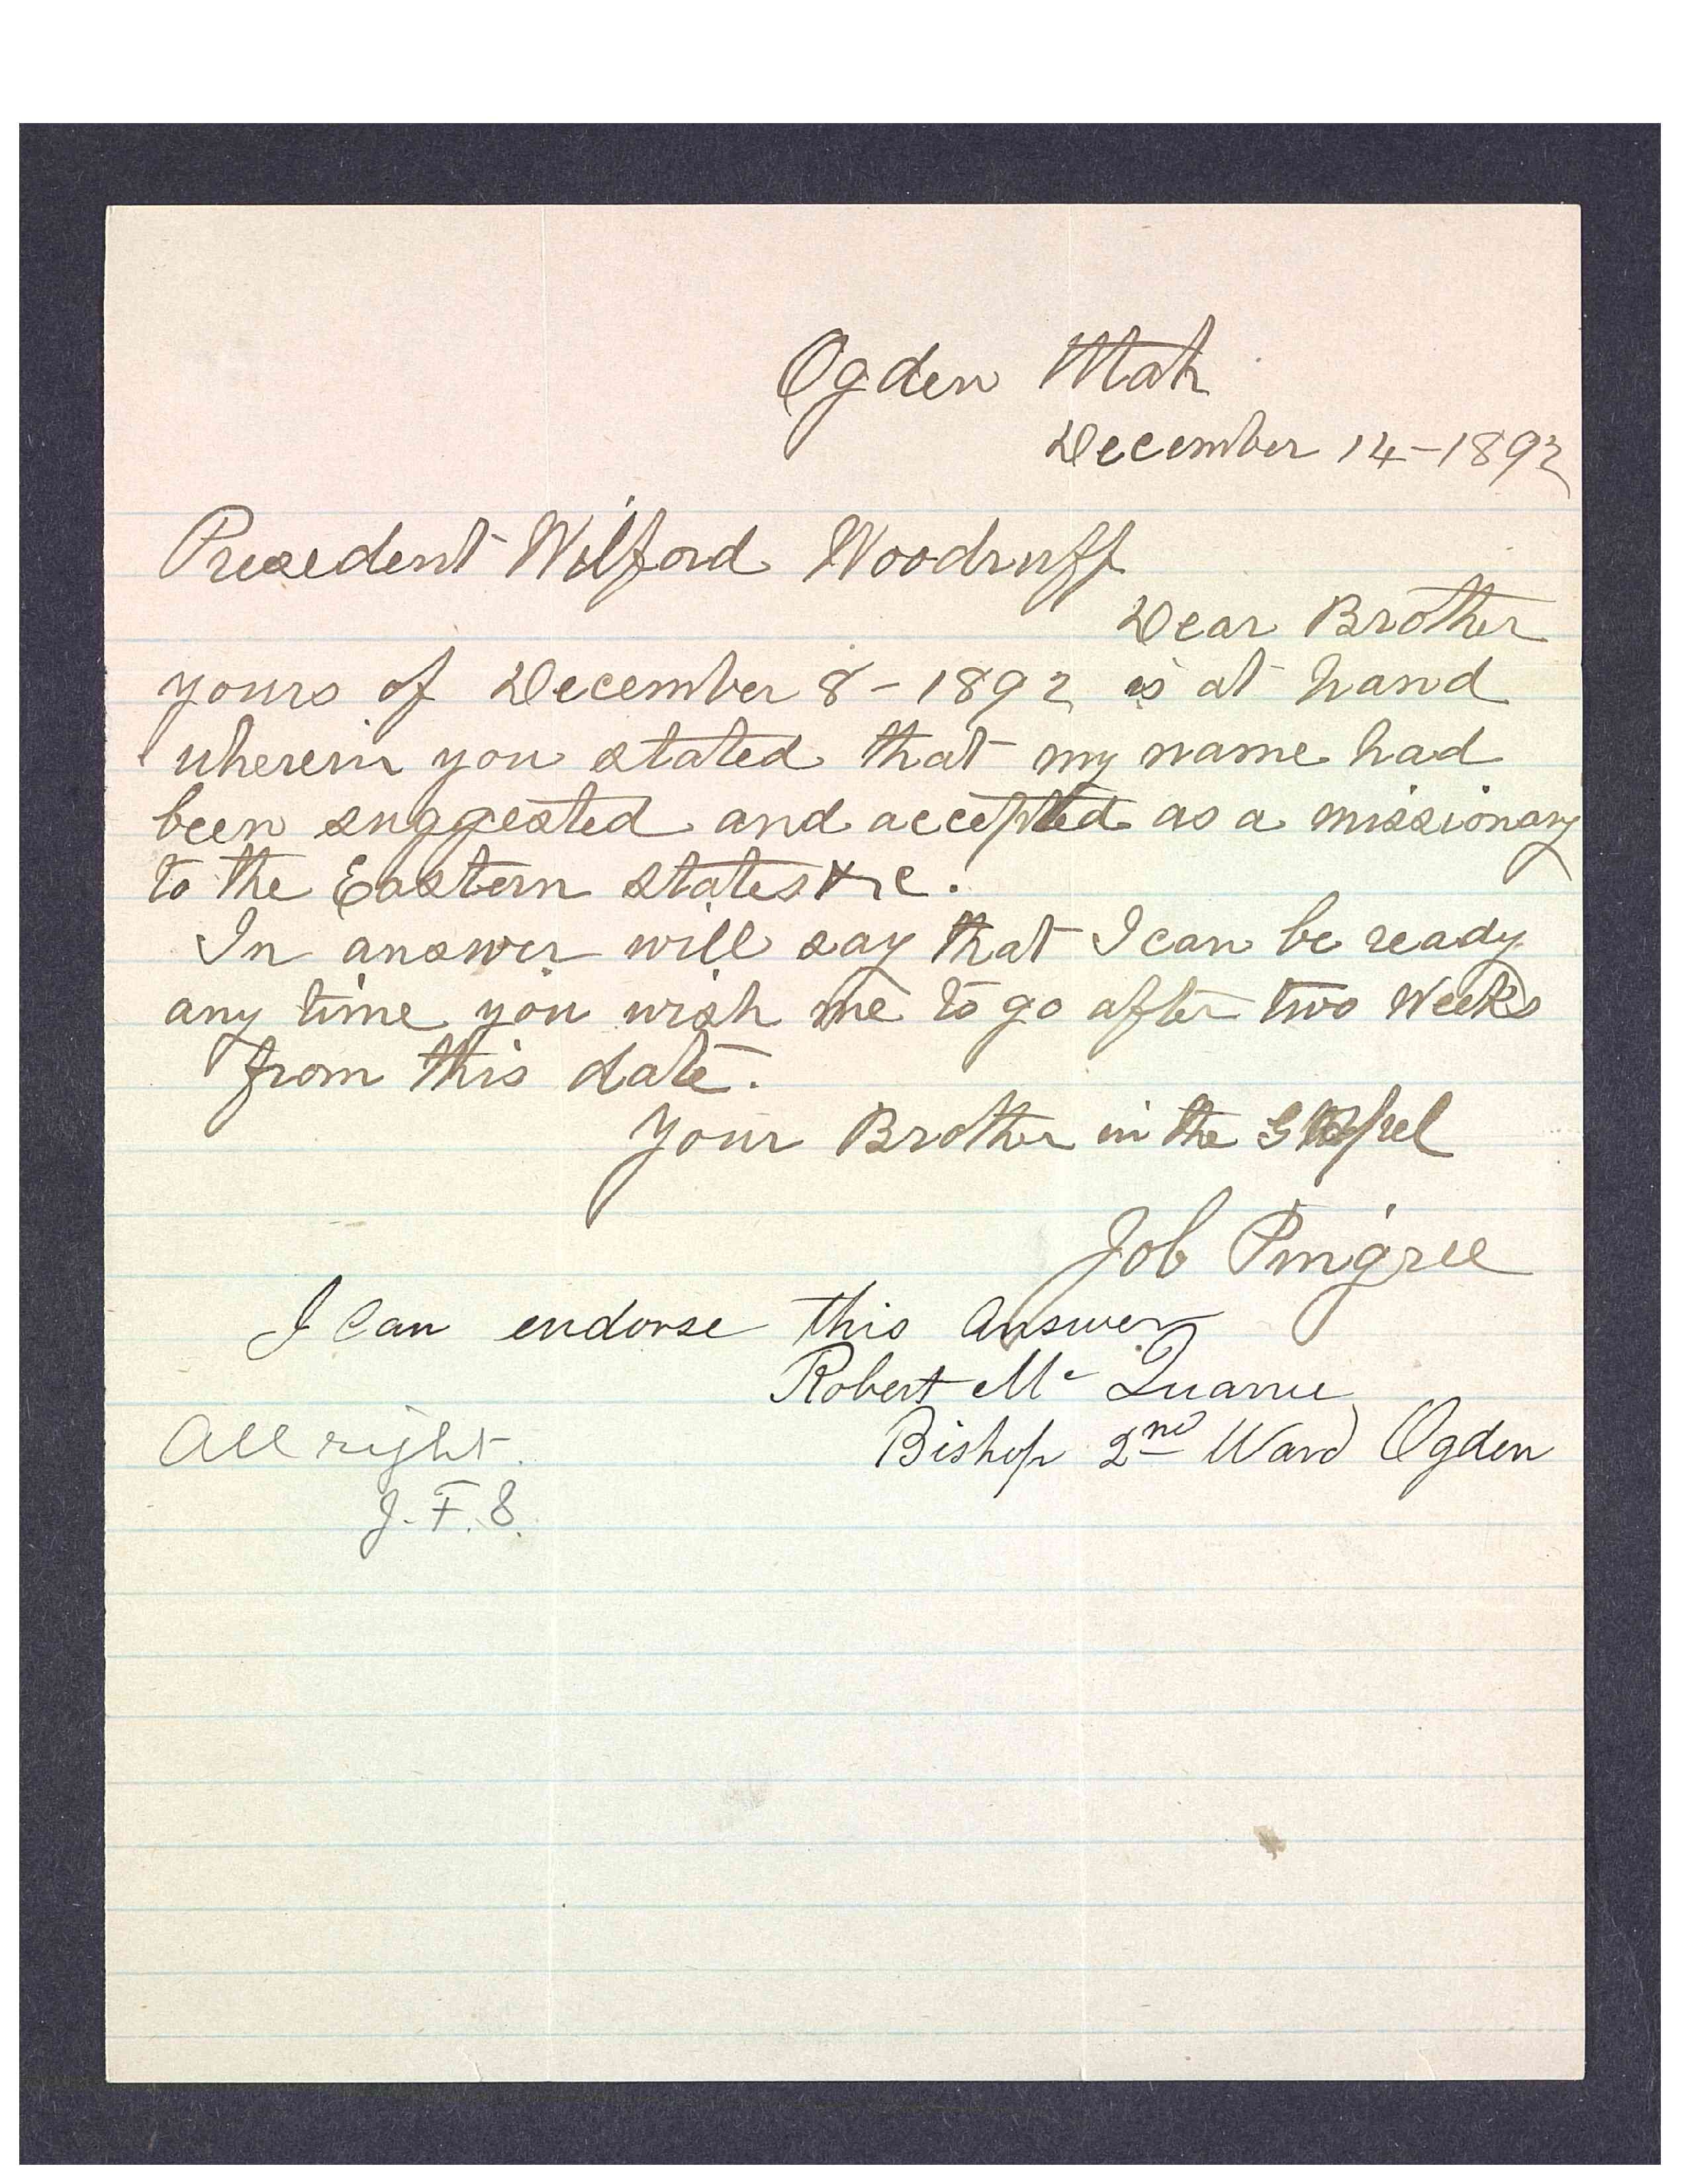 Ogden Utah
December 14-1892
President Wilford Woodruff
Dear Brother
yours of December 8-1892 is at hand
wherein you stated that my name had
been suggested and accepted as a missionary
to the Eastern states &c.
In answer will say that I can be ready
any time you wish me to go after two Weeks
from this date.
Your Brother in the Gospel
Job Pingree
I Can endorse this answer
Robert Mc Quarrie
Bishop 2nd Ward Ogden
All right.
J. F. S.